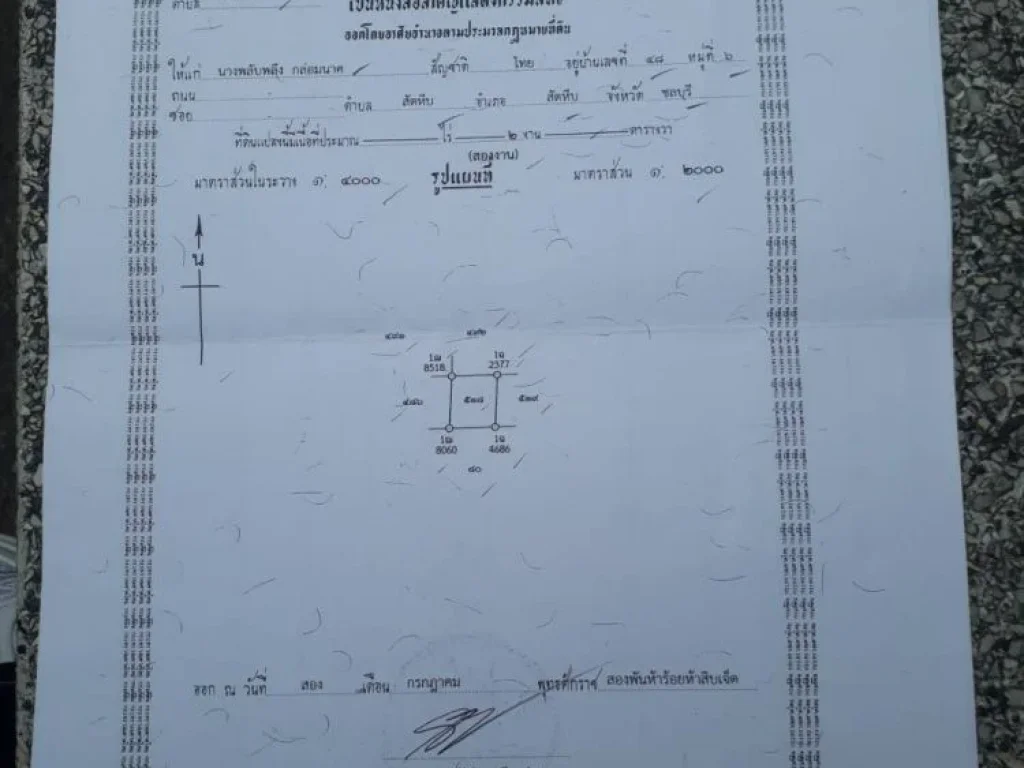 ตำบล
เป็นหนังสือสำคัญแสดงกรรมสิทธิ์
ออกโดยอาศัยอำนาจตามประมวลกฎหมายที่ดิน
ให้แก่ นางพลับพลึง กล่อมนาค สัญชาติ ไทย อยู่บ้านเลขที่ ๔๘ หมู่ที่ ๖
ถนน
ซอย ตำบล สัตหีบ อำเภอ สัตหีบ จังหวัด ชลบุรี
ที่ดินแปลงนี้มีเนื้อที่ประมาณ ไร่ ๒ งาน ตารางวา
(สองงาน)
มาตราส่วนในระวาง ๑: ๔๐๐๐ รูปแผนที่ มาตราส่วน ๑: ๒๐๐๐
น
1ฌ 8518
1จ 2577
1ฌ 8060
1จ 4686
๘๐
ออก ณ วันที่ สอง เดือน กรกฎาคม พุทธศักราช สองพันห้าร้อยห้าสิบเจ็ด